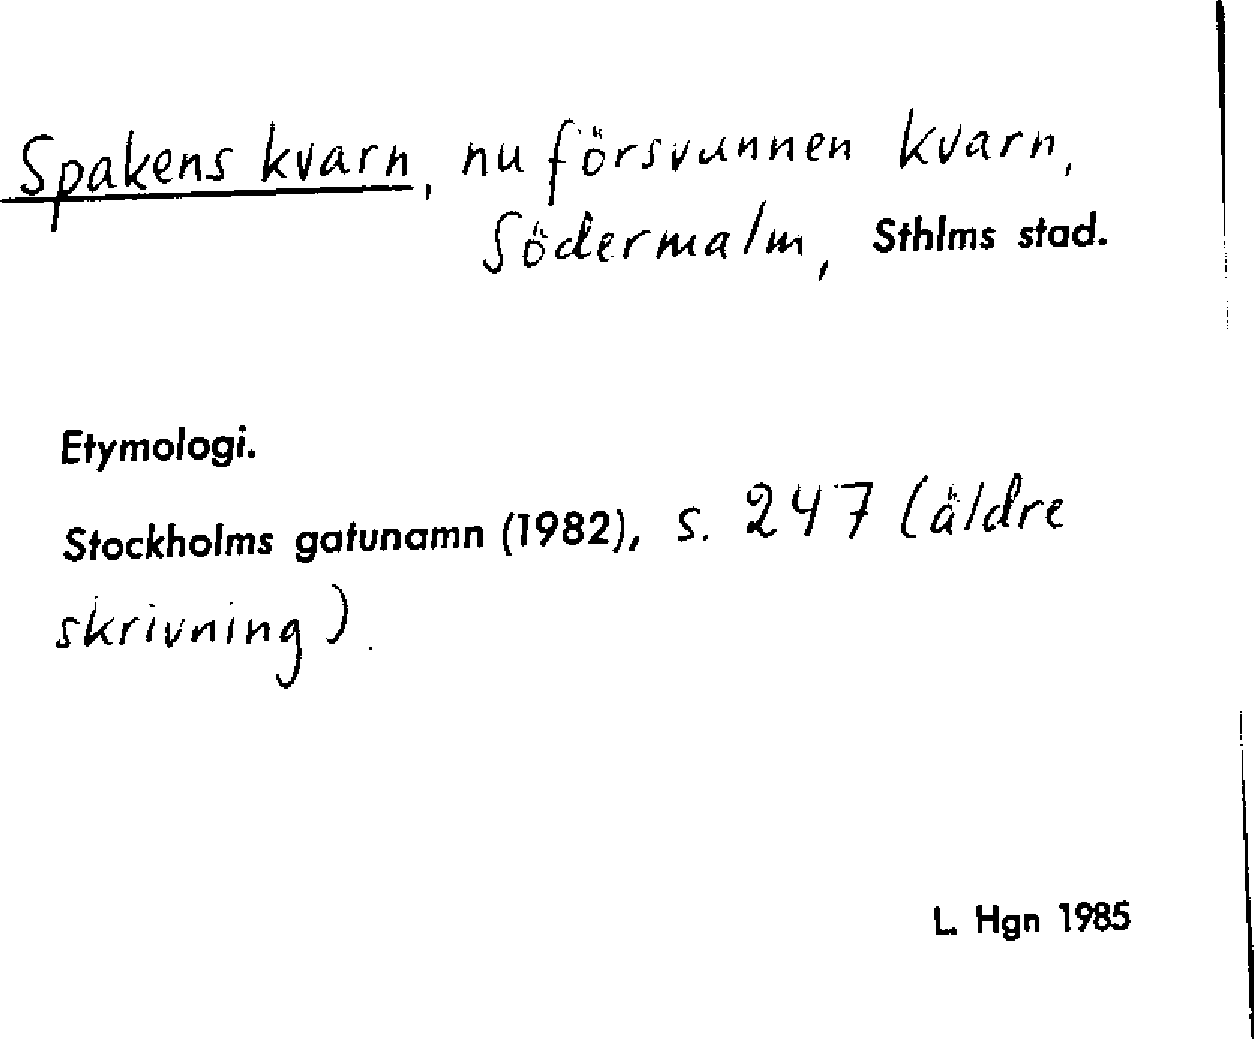 Spakens kvarn, nu försvunnen kvarn,
Södermalm, Sthlms stad.
Etymologi.
Stockholms gatunamn (1982), s. 247 (äldre
skrivning).
L. Hgn 1985